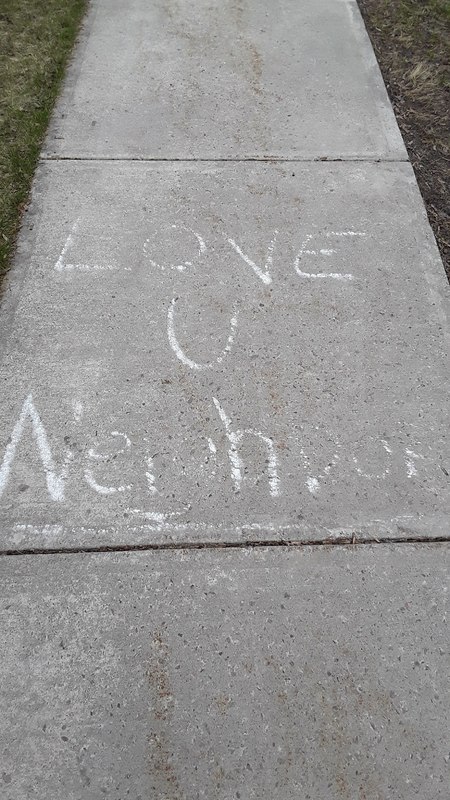 LOVE
U
Neighbor